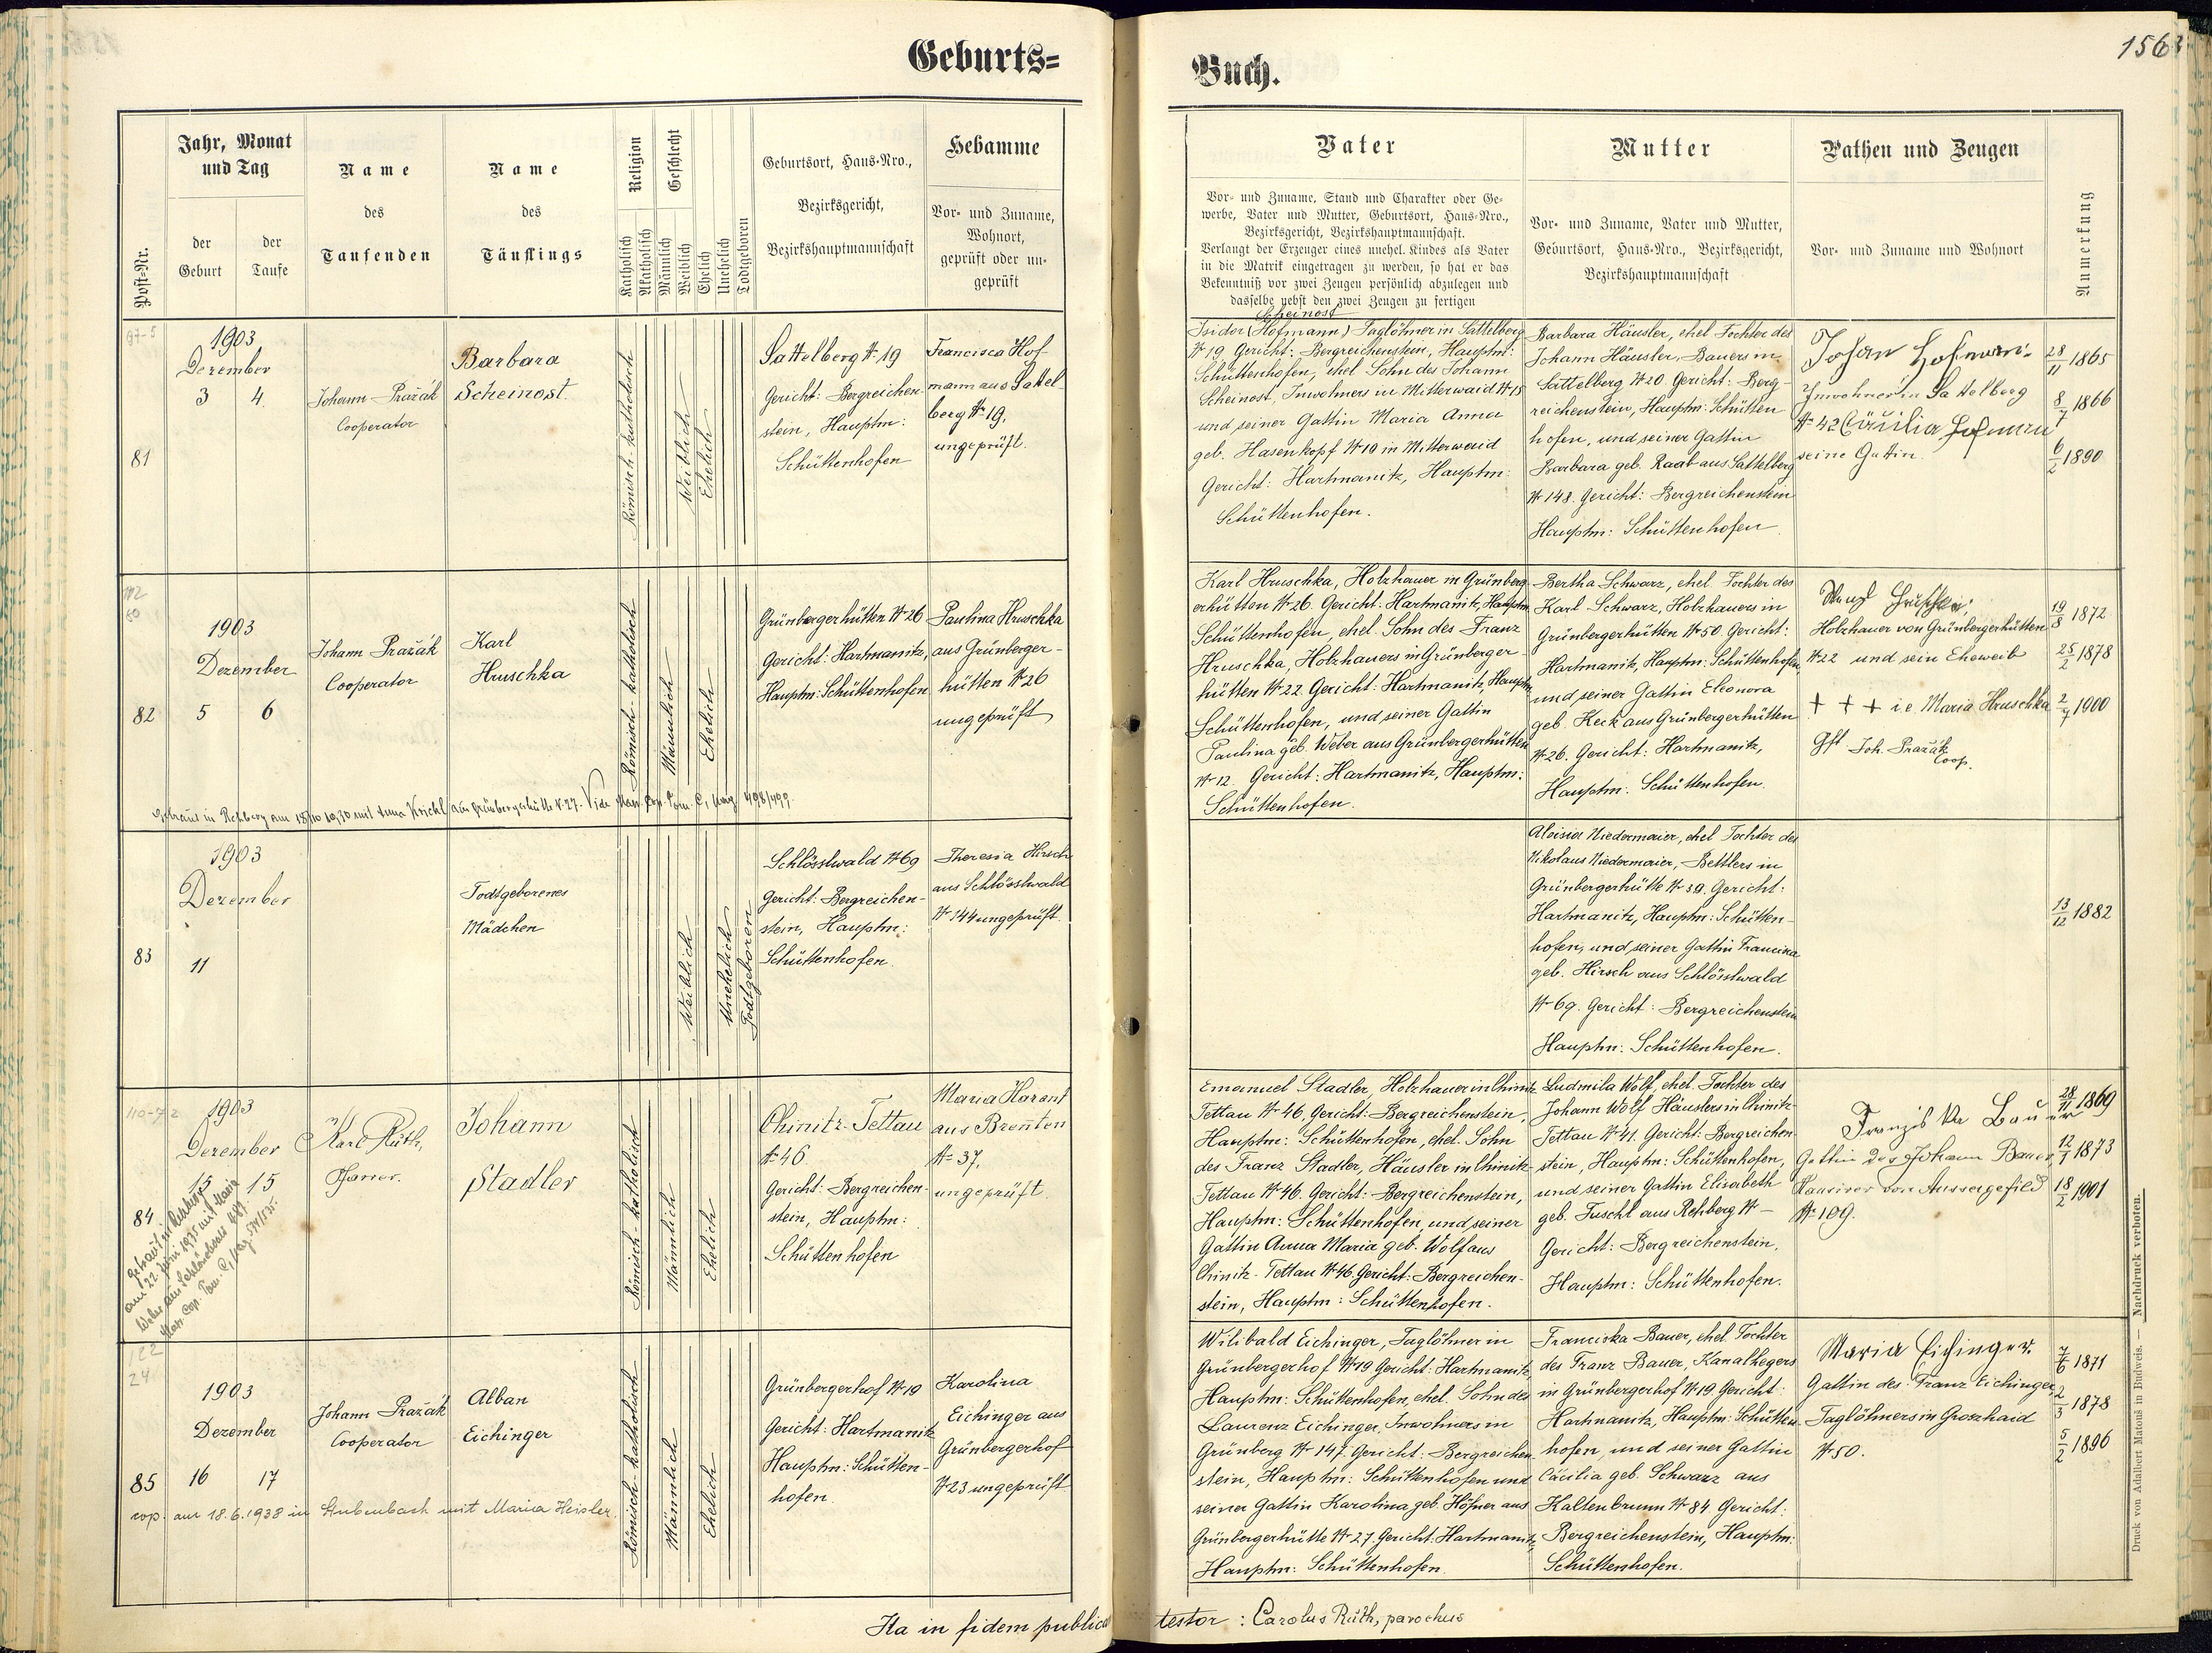 Geburts=
Buch.
156
Post=Nr.
Jahr, Monat
und Tag
der
Geburt
der
Taufe
Name
des
Taufenden
Name
des
Täuflings
Religion
Katholisch
Akatholisch
Geschlecht
Männlich
Weiblich
Ehelich
Unehelich
Todtgeboren
Geburtsort, Haus=Nro.,
Bezirksgericht,
Bezirkshauptmannschaft
Hebamme
Vor= und Zuname,
Wohnort,
geprüft oder un=
geprüft
Vater
Vor= und Zuname, Stand und Charakter oder Ge=
werbe, Vater und Mutter, Geburtsort, Haus=Nro.,
Bezirksgericht, Bezirkshauptmannschaft.
Verlangt der Erzeuger eines unehel. Kindes als Vater
in die Matrik eingetragen zu werden, so hat er das
Bekenntniß vor zwei Zeugen persönlich abzulegen und
dasselbe nebst den zwei Zeugen zu fertigen
Mutter
Vor= und Zuname, Vater und Mutter,
Geburtsort, Haus=Nro., Bezirksgericht,
Bezirkshauptmannschaft
Pathen und Zeugen
Vor= und Zuname und Wohnort
Anmerkung
97-5
81
1903
Dezember
3 4.
Johann Pražák
Cooperator
Barbara
Scheinost.
Römisch-katholisch
Weiblich
Ehelich
Sattelberg N 19
Gericht: Bergreichen-
stein, Hauptm:
Schüttenhofen
Francisca Hof-
mann aus Sattel-
berg N 19,
ungeprüft.
Scheinost
Isidor (Hofmann) Taglöhner in Sattelberg
N 19 Gericht: Bergreichenstein, Hauptm:
Schüttenhofen, ehel. Sohn des Johann
Scheinost, Inwohners in Mitterwaid N 18
und seiner Gattin Maria Anna
geb. Hasenkopf N 19 in Mitterwaid
Gericht: Hartmanitz, Hauptm:
Schüttenhofen.
Barbara Häusler, ehel. Tochter des
Johann Häusler, Bauers in
Sattelberg N 20. Gericht: Berg-
reichenstein, Hauptm: Schütten
hofen, und seiner Gattin
Barbara geb. Raab aus Sattelberg
N 148. Gericht: Bergreichenstein
Hauptm: Schüttenhofen.
Johan Hofmann
Inwohner in Sattelberg
N 42 Cäcilia Hofmann
seine Gattin.
28/11 1865
8/7 1866
6/2 1890
82
1903
Dezember
5 6
Johann Pražák
Cooperator
Karl
Hruschka
Römisch-katholisch
Männlich
Ehelich
Grünbergerhütten N 26
Gericht: Hartmanitz,
Hauptm: Schüttenhofen
Paulina Hruschka
aus Grünberger-
hütten N 26
ungeprüft
Karl Hruschka, Holzhauer in Grünberg-
erhütten N 26. Gericht: Hartmanitz, Hauptm
Schüttenhofen, ehel. Sohn des Franz
Hruschka, Holzhauers in Grünberger-
hütten N 22. Gericht: Hartmanitz, Hauptm
Schüttenhofen, und seiner Gattin
Paulina geb. Weber aus Grünbergerhütten
N 12. Gericht: Hartmanitz, Hauptm:
Schüttenhofen.
Bertha Schwarz, ehel. Tochter des
Karl Schwarz, Holzhauers in
Grünbergerhütten N 50. Gericht:
Hartmanitz, Hauptm: Schüttenhofen,
und seiner Gattin Eleonora
geb. Keck aus Grünbergerhütten
N 26. Gericht: Hartmanitz,
Hauptm: Schüttenhofen.
Holzhauer von Grünbergerhütten
N 22 und sein Eheweib
+ + + i.e. Maria Hruschka
Gft Joh. Pražák
Coop.
19/8 1872
25/2 1878
2/7 1900
83
1903
Dezember
11
Todtgeborenes
Mädchen
Weiblich
Unehelich
Todtgeboren
Schlösslwald N 69
Gericht: Bergreichen-
stein, Hauptm:
Schüttenhofen.
Theresia Hirsch
aus Schlösslwald
N 144 ungeprüft.
Aloisia Niedermaier, ehel. Tochter des
Nikolaus Niedermaier, Bettlers in
Grünbergerhütte N 39. Gericht:
Hartmanitz, Hauptm: Schütten-
hofen, und seiner Gattin
geb. Hirsch aus Schlösslwald
N 69. Gericht: Bergreichenstein
Hauptm: Schüttenhofen.
13/12 1882
84
1903
Dezember
15 15
Karl Rüth,
Pfarrer.
Johann
Stadler
Römisch-katholisch
Männlich
Ehelich
Chinitz-Tettau
N 46.
Gericht: Bergreichen-
stein, Hauptm:
Schüttenhofen
Maria Harant
aus Brenten
N 37,
ungeprüft.
Emanuel Stadler, Holzhauer in Chinitz
Tettau N 46. Gericht: Bergreichenstein,
Hauptm: Schüttenhofen, ehel. Sohn
des Franz Stadler, Häusler in Chinitz-
Tettau N 46. Gericht: Bergreichenstein,
Hauptm: Schüttenhofen, und seiner
Gattin Anna Maria geb. Wolf aus
Chinitz-Tettau N 46. Gericht: Bergreichen-
stein, Hauptm: Schüttenhofen.
Ludmila Wolf, ehel. Tochter des
Johann Wolf Häuslers in Chinitz-
Tettau N 41. Gericht: Bergreichen-
stein, Hauptm: Schüttenhofen,
und seiner Gattin Elisabeth
geb. Tuschl aus Rehberg N —
Gericht: Bergreichenstein,
Hauptm: Schüttenhofen.
Franziska Bauer
Gattin des Johann Bauer,
Hausirer von Aussergefild
N 109.
28/11 1869
12/7 1873
18/2 1901
122
24
85
1903
Dezember
16 17
Johann Pražák
Cooperator
Alban
Eichinger
cop. am 18.6.1938 in Stubenbach mit Maria Heisler.
Römisch-katholisch
Männlich
Ehelich
Grünbergerhof N 19
Gericht: Hartmanitz
Hauptm: Schütten-
hofen.
Karolina
Eichinger aus
Grünbergerhof
N 23 ungeprüft
Wilibald Eichinger, Taglöhner in
Grünbergerhof N 19 Gericht: Hartmanitz,
Hauptm: Schüttenhofen, ehel. Sohn des
Laurenz Eichinger, Inwohners in
Grünberg N 147. Gericht: Bergreichen-
stein, Hauptm: Schüttenhofen und
seiner Gattin Karolina geb. Höfner aus
Grünbergerhütte N 27. Gericht: Hartmanitz,
Hauptm: Schüttenhofen.
Franciska Bauer, ehel. Tochter
des Franz Bauer, Kanalhegers
in Grünbergerhof N 19. Gericht:
Hartmanitz, Hauptm: Schütten-
hofen, und seiner Gattin
Cäcilia geb. Schwarz aus
Kaltenbrunn N 84 Gericht:
Bergreichenstein, Hauptm:
Schüttenhofen.
Maria Eichinger
Gattin des Franz Eichinger,
Taglöhners in Groszhaid
N 50.
7/6 1871
2/3 1878
5/2 1896
Ita in fidem publica
testor: Carolus Rüth, parochus
Druck von Adalbert Matouš in Budweis. — Nachdruck verboten.